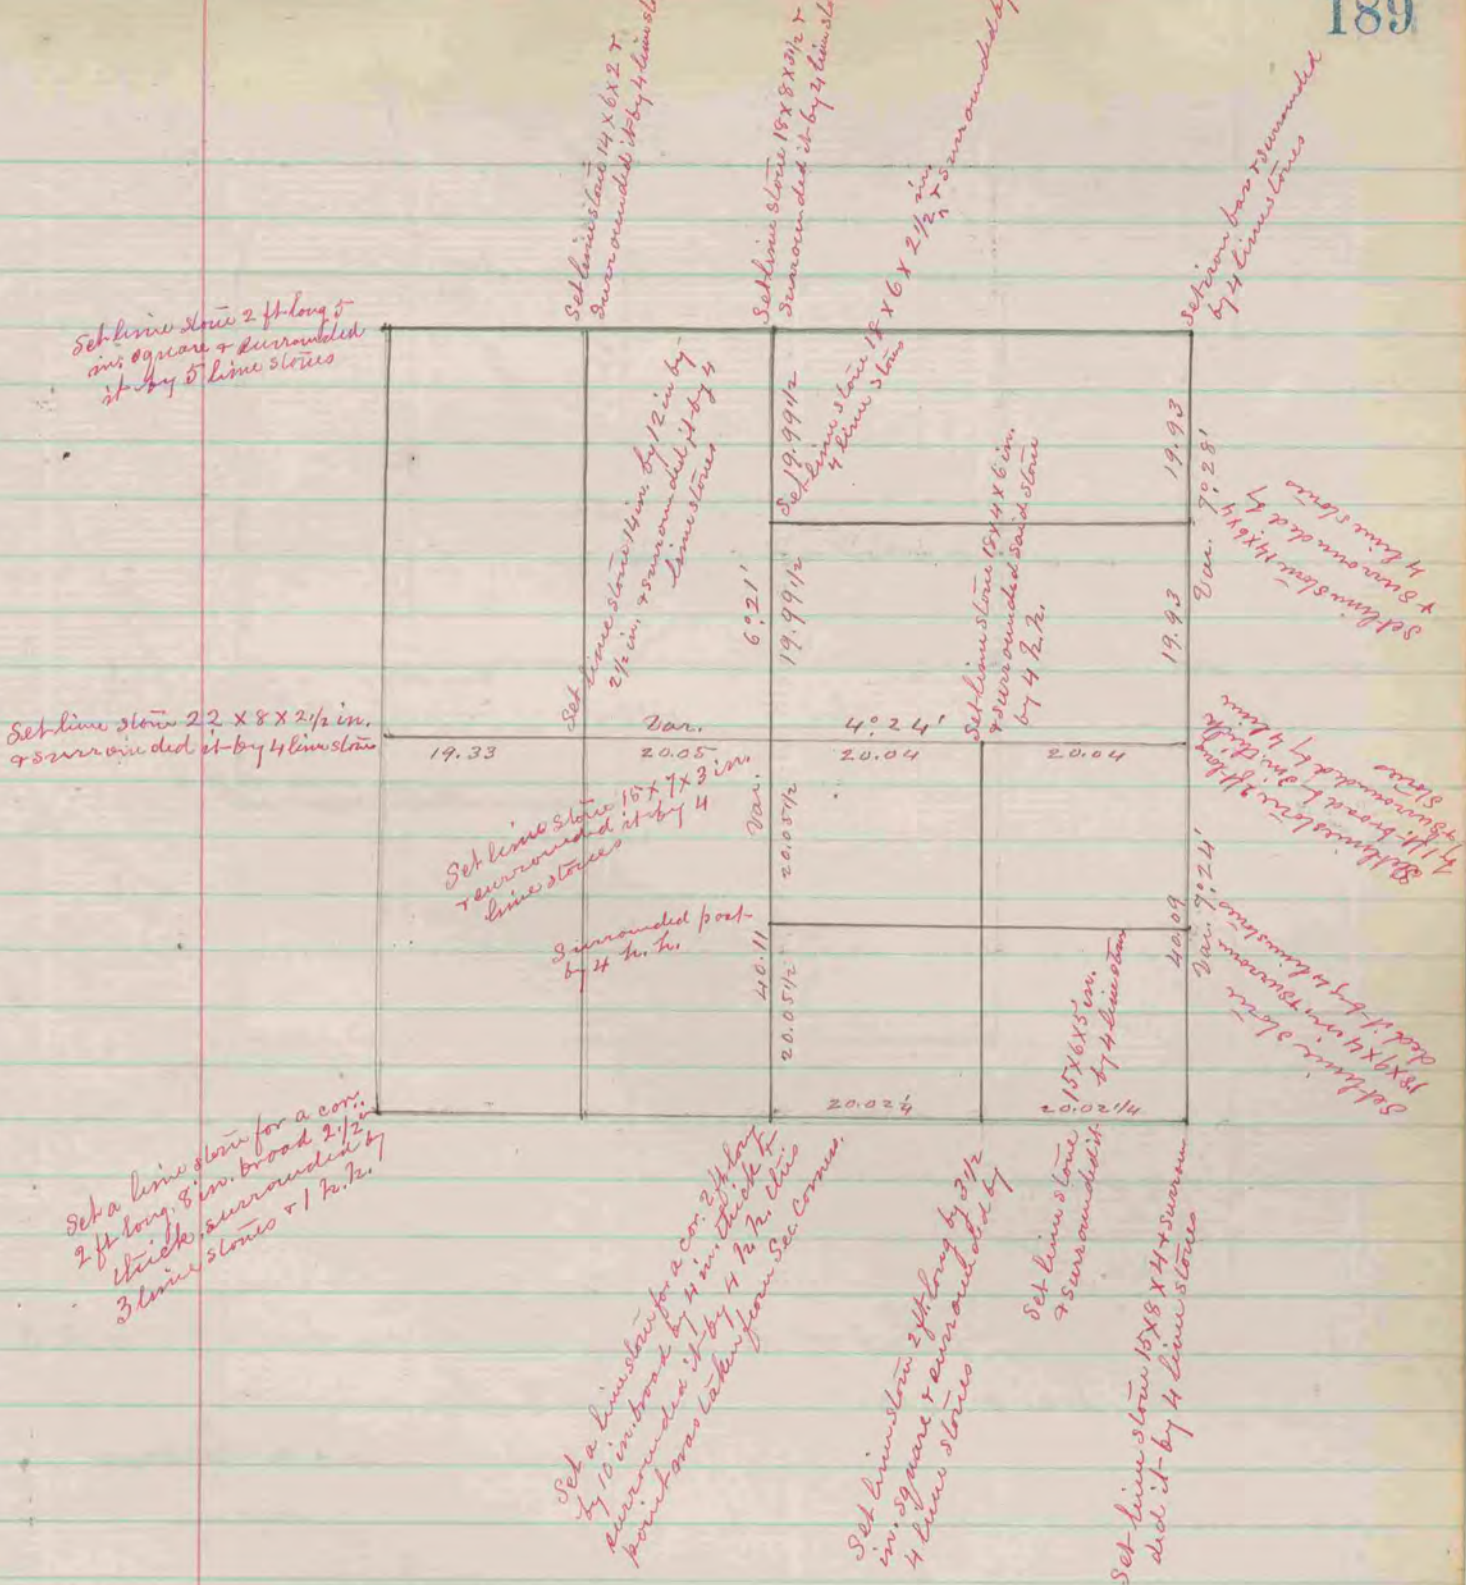 189
Set lime stone 14 x 6 x 2 &
surrounded it by 4 lime
Set lime stone 18 x 8 x 3 1/2 &
surrounded it by 4 lime
Set lime stone 18 x 6 x 2 1/2 in. & surrounded
4 lime stones
Set iron bar & surrounded
by 4 lime stones
Set lime stone 2 ft long 5
in. square & surrounded
it by 5 lime stones
Set lime stone 14 in. by 12 in by
2 1/2 in. & surrounded it by 4
lime stones
19.99 1/2
19.99 1/2
6° 21'
Set lime stone 18 x 4 x 6 in.
& surrounded said stone
by 4 h. h.
19.93
19.93
Var. 7° 28'
Set lime stone 14 x 6 x 4
& surrounded by
4 lime stones
Set lime stone 22 x 8 x 2 1/2 in.
& surrounded it by 4 lime stones
Var. 4° 24'
19.33 20.05 20.04 20.04
Set lime stone 2 ft long
by 1 ft. broad by 3 in. thick
& surrounded by 4 lime
stones
Set lime stone 15 x 7 x 3 in.
& surrounded it by 4
lime stones
Var.
20.05 1/2
Surrounded post
by 4 h. h.
40.11
20.05 1/2
40.09
Var. 7° 24'
Set lime stone
18 x 9 x 4 in. & surroun
ded it by 4 lime stones
15 x 6 x 5 in.
by 4 lime stones
20.02 1/4 20.02 1/4
Set a lime stone for a cor.
2 ft long, 8 in. broad 2 1/2 in
thick, surrounded by
3 lime stones & 1 h. h.
Set a lime stone for a cor. 2 ft long
by 10 in. broad by 4 in. thick &
surrounded it by 4 h. h. this
point was taken from Sec. Corners.
Set lime stone 2 ft. long by 3 1/2
in. square & surrounded by
4 lime stones
Set lime stone
& surrounded it
Set lime stone 15 x 8 x 4 & surroun
ded it by 4 lime stones